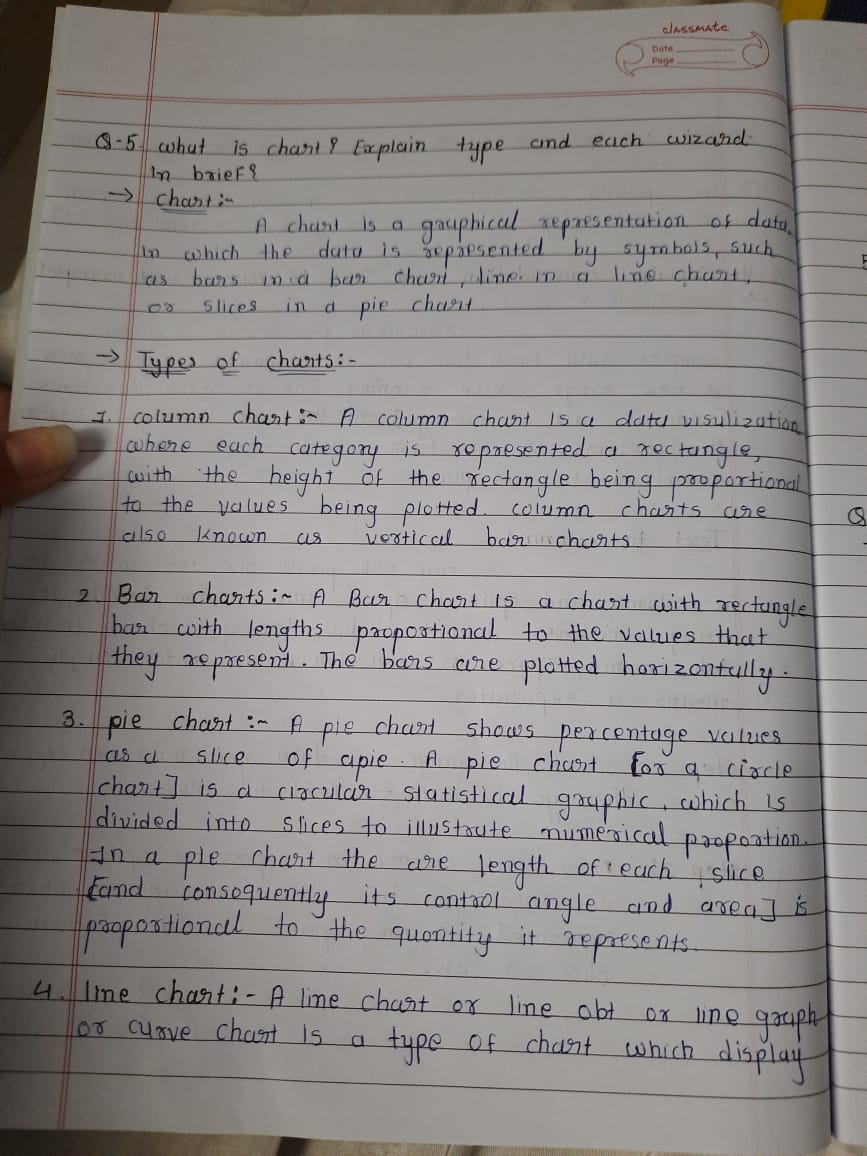 classmate
Date
Page
Q-5. what is chart? Explain type and each wizard
In brief?
→ chart:-
A chart is a graphical representation of data,
in which the data is represented by symbols, such
as bars in a bar chart, line in a line chart,
or slices in a pie chart
→ Types of charts:-
1. column chart:- A column chart is a data visulization
where each category is represented a rectangle,
with the height of the rectangle being proportional
to the values being plotted. column charts are
also known as vertical bar charts.
2. Bar charts:- A Bar chart is a chart with rectangle
bar with lengths proportional to the values that
they represent. The bars are plotted horizontally.
3. pie chart:- A pie chart shows percentage values
as a slice of apie. A pie chart [or a circle
chart] is a circular statistical graphic, which is
divided into slices to illustrate numerical proportion.
In a pie chart the arc length of each slice
[and consoquently its control angle and area] is
proportional to the quontity it represents.
4. line chart:- A line chart or line obt or line graph
or curve chart is a type of chart which display
Q